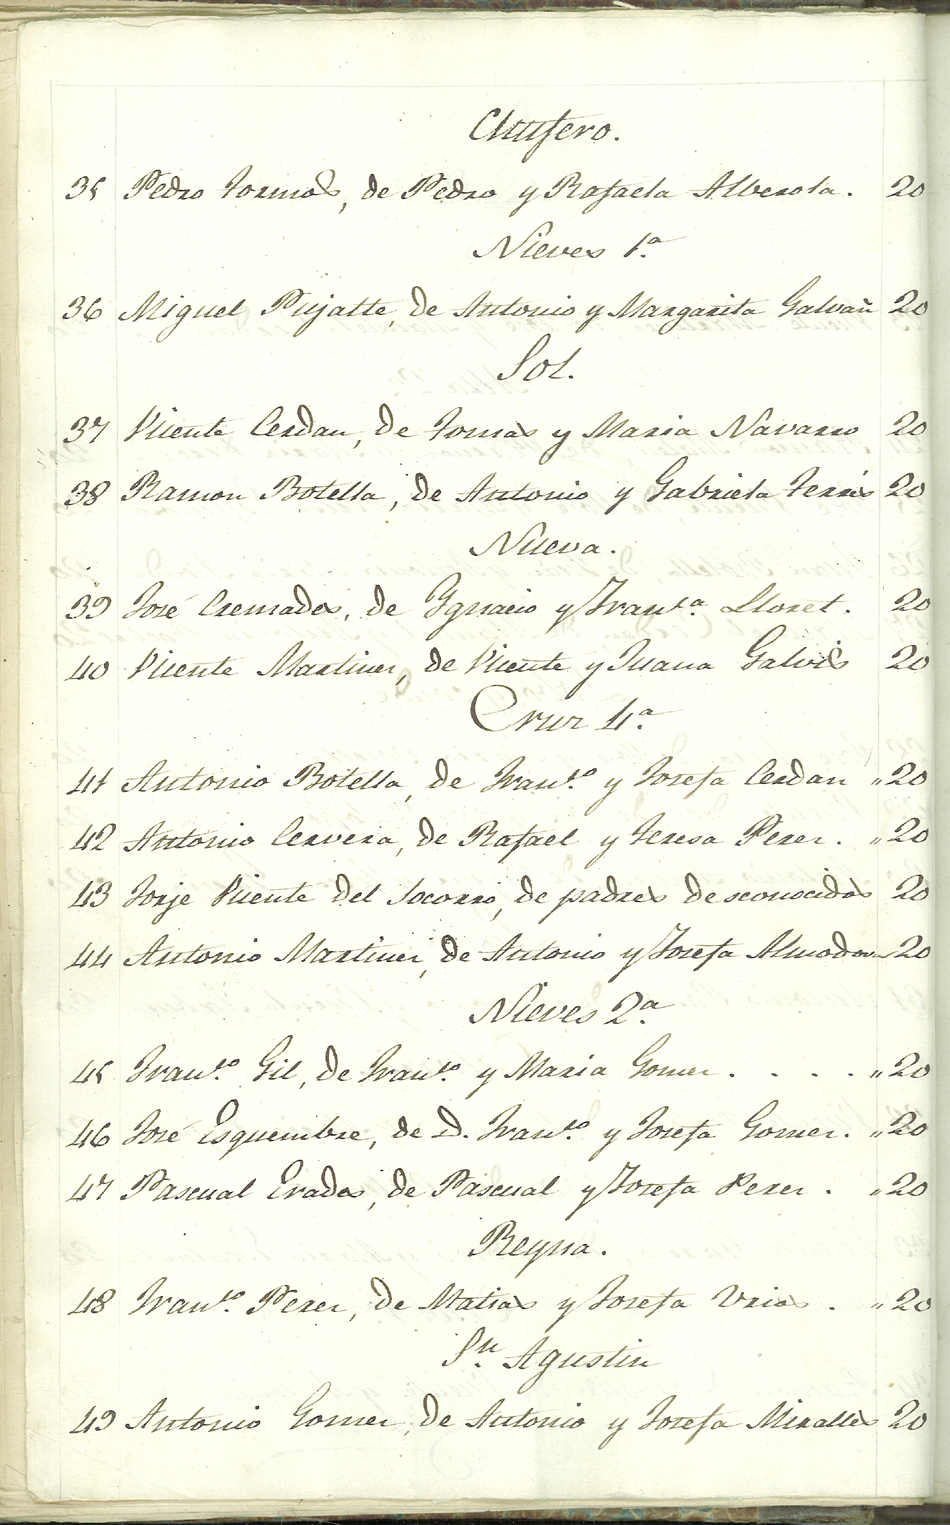 Chufero.
35 Pedro Tormos, de Pedro y Rafaela Alberola. 20
Nieves 1.ª
36 Miguel Pujalte, de Antonio y Margarita Galvañ 20
Sol.
37 Vicente Cerdan, de Tomas y Maria Navarro 20
38 Ramon Botella, de Antonio y Gabriela Ferris 20
Nueva.
39 José Cremades, de Ygnacio y Fran.ca Lloret. 20
40 Vicente Martinez, de Vicente y Juana Galvis 20
Cruz 4.ª
41 Antonio Botella, de Fran.co y Josefa Cerdan „ 20
42 Antonio Cervera, de Rafael y Teresa Perez. „ 20
43 Jorje Vicente del Socorro, de padres desconocidos 20
44 Antonio Martinez, de Antonio y Josefa Almodovar 20
Nieves 2.ª
45 Fran.co Gil, de Fran.co y Maria Gomez . . . . „ 20
46 José Esquembre, de D. Fran.co y Josefa Gomez. „ 20
47 Pascual Erades, de Pascual y Josefa Perez . „ 20
Reyna.
48 Fran.co Perez, de Matias y Josefa Urios . „ 20
S.n Agustin
49 Antonio Gomez, de Antonio y Josefa Miralles 20